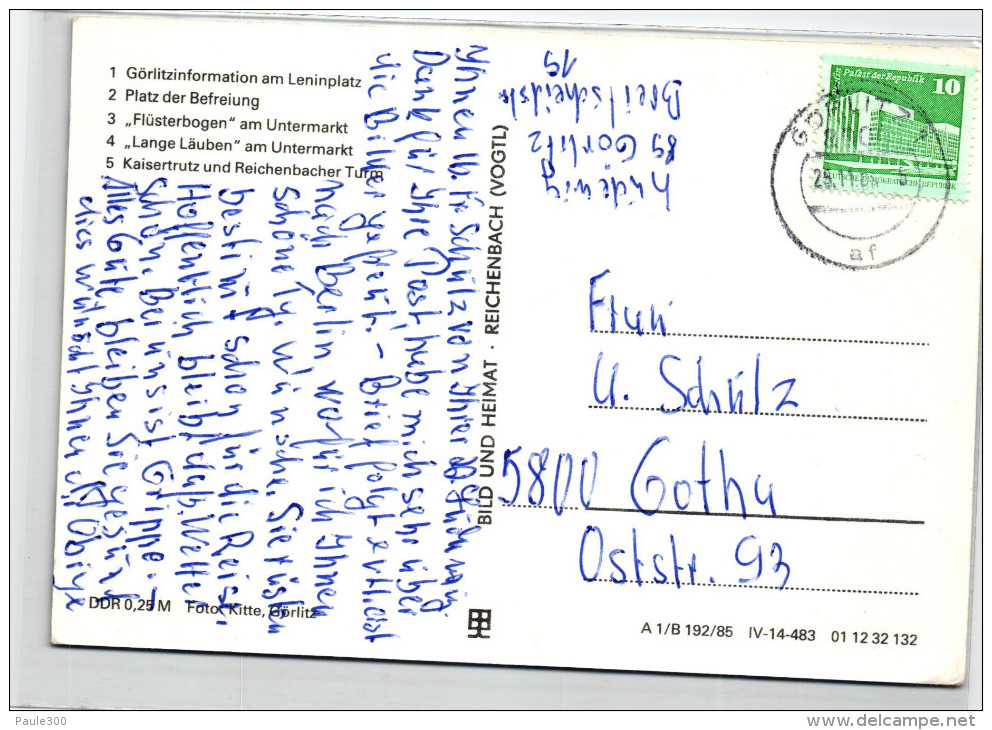 1 Görlitzinformation am Leninplatz
2 Platz der Befreiung
3 „Flüsterbogen" am Untermarkt
4 „Lange Läuben" am Untermarkt
5 Kaisertrutz und Reichenbacher Turm
Ihnen lb. Fr. Schülz von Ihrer
Dank für Ihre Post, habe mich sehr über
die Bilder gefreut. – Brief folgt
nach Berlin, wofür ich Ihnen
schöne Tg. wünsche. Sie rüsten
bestimmt schon für die Reise.
Hoffentlich bleibt das Wetter
schön. Bei uns ist Grippe. –
Alles Gute, bleiben Sie gesund
dies wünscht Ihnen Obige
DDR 0,25 M Foto: Kitte, Görlitz
BILD UND HEIMAT · REICHENBACH (VOGTL)
89 Görlitz
Breitscheidstr
19
Palast der Republik 10
DEUTSCHE DEMOKRATISCHE REPUBLIK
GÖRLITZ
af
Frau
U. Schülz
5800 Gotha
Oststr. 93
A 1/B 192/85 IV-14-483 01 12 32 132
Paule300
delcampe.net